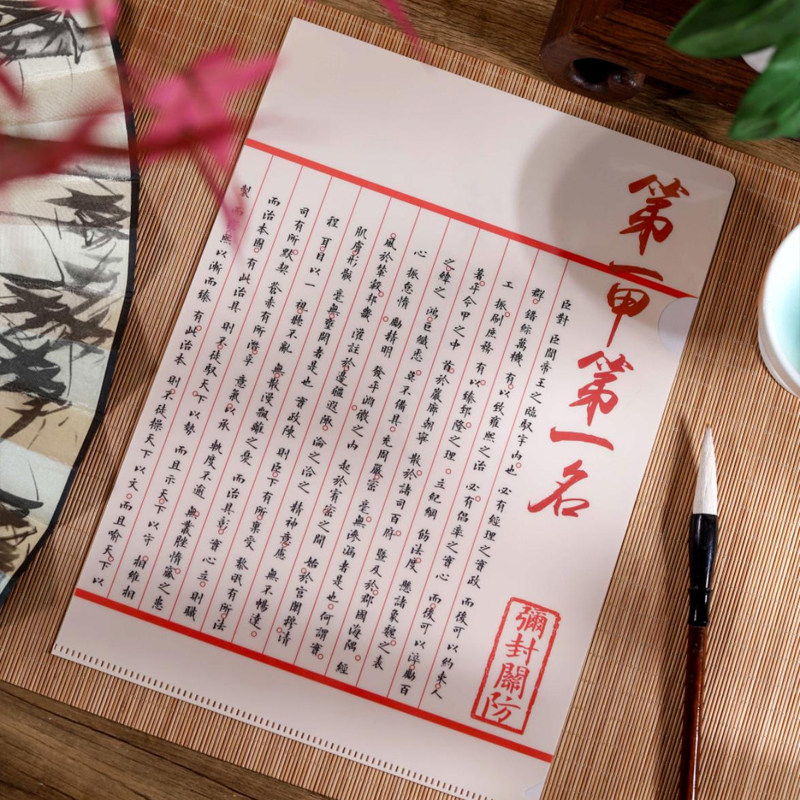 第一甲第一名
臣對 臣聞帝王之臨馭宇内也 必有經理之實政 而後可以約束人
群 錯綜萬機 有以致雍熙之治 必有倡率之實心 而後可以淬勵百
工 振刷庶務 有以臻郅隆之理 立紀綱 飭法度 懸諸象魏之表
著乎令甲之中 首於巖廊朝寧 散於諸司百府 暨及於郡國海隅 經
之緯之 鴻巨纖悉 莫不備具 充周嚴密 毫無滲漏者是也 何謂實
心 振怠惰 勵精明 發乎淵微之内 起於宥密之間 始於宮闈穆清
風於輦轂邦畿 灌註於邊疆遐陬 淪之洽之 精神意慮 無不暢達
肌膚形骸 毫無壅閼者是也 實政陳 則臣下有所稟受 黎氓有所法
程 耳目以一 視聽不亂 無散漫飄離之憂 而治具彰 實心立 則職
司有所默契 蒼赤有所潛孚 意氣以承 軌度不逾 無叢脞惰窳之患
而治本固 有此治具 則不徒馭天下以勢 而且示天下以守 相維相
製 而熙以漸而臻 有此治本 則不徒操天下以文 而且喻天下以
彌封關防